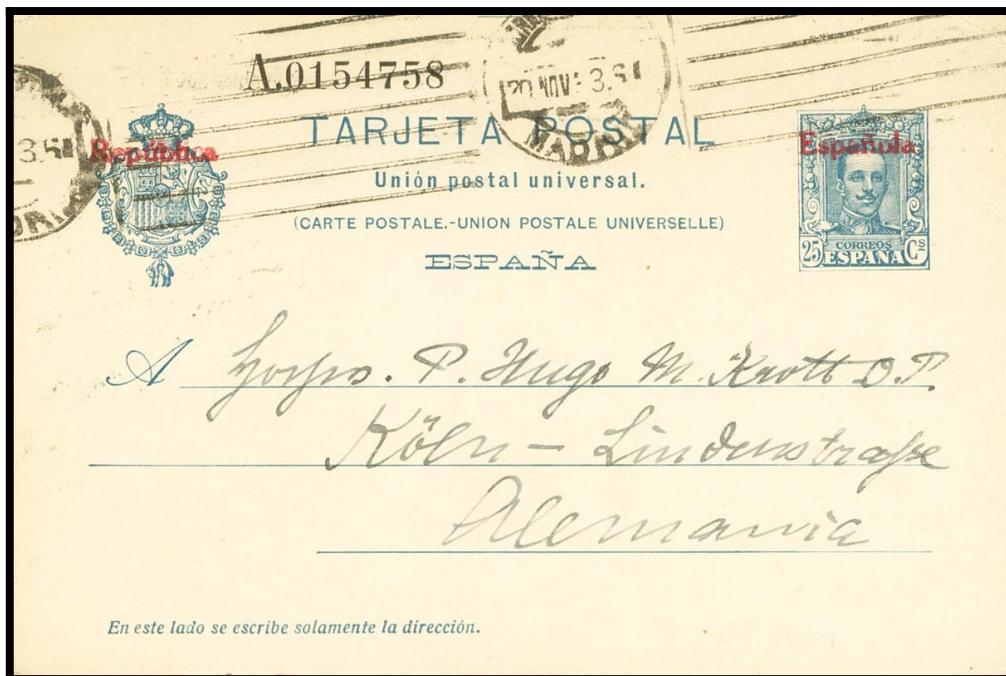 A.0154758
20 NOV 3.S
MADRID
TARJETA POSTAL
República
Española
Unión postal universal.
(CARTE POSTALE.-UNION POSTALE UNIVERSELLE)
ESPAÑA
CORREOS
25 ESPAÑA Cs
A P. Hugo M. Krott O.P.
Köln - Lindenstraße
Alemania
En este lado se escribe solamente la dirección.